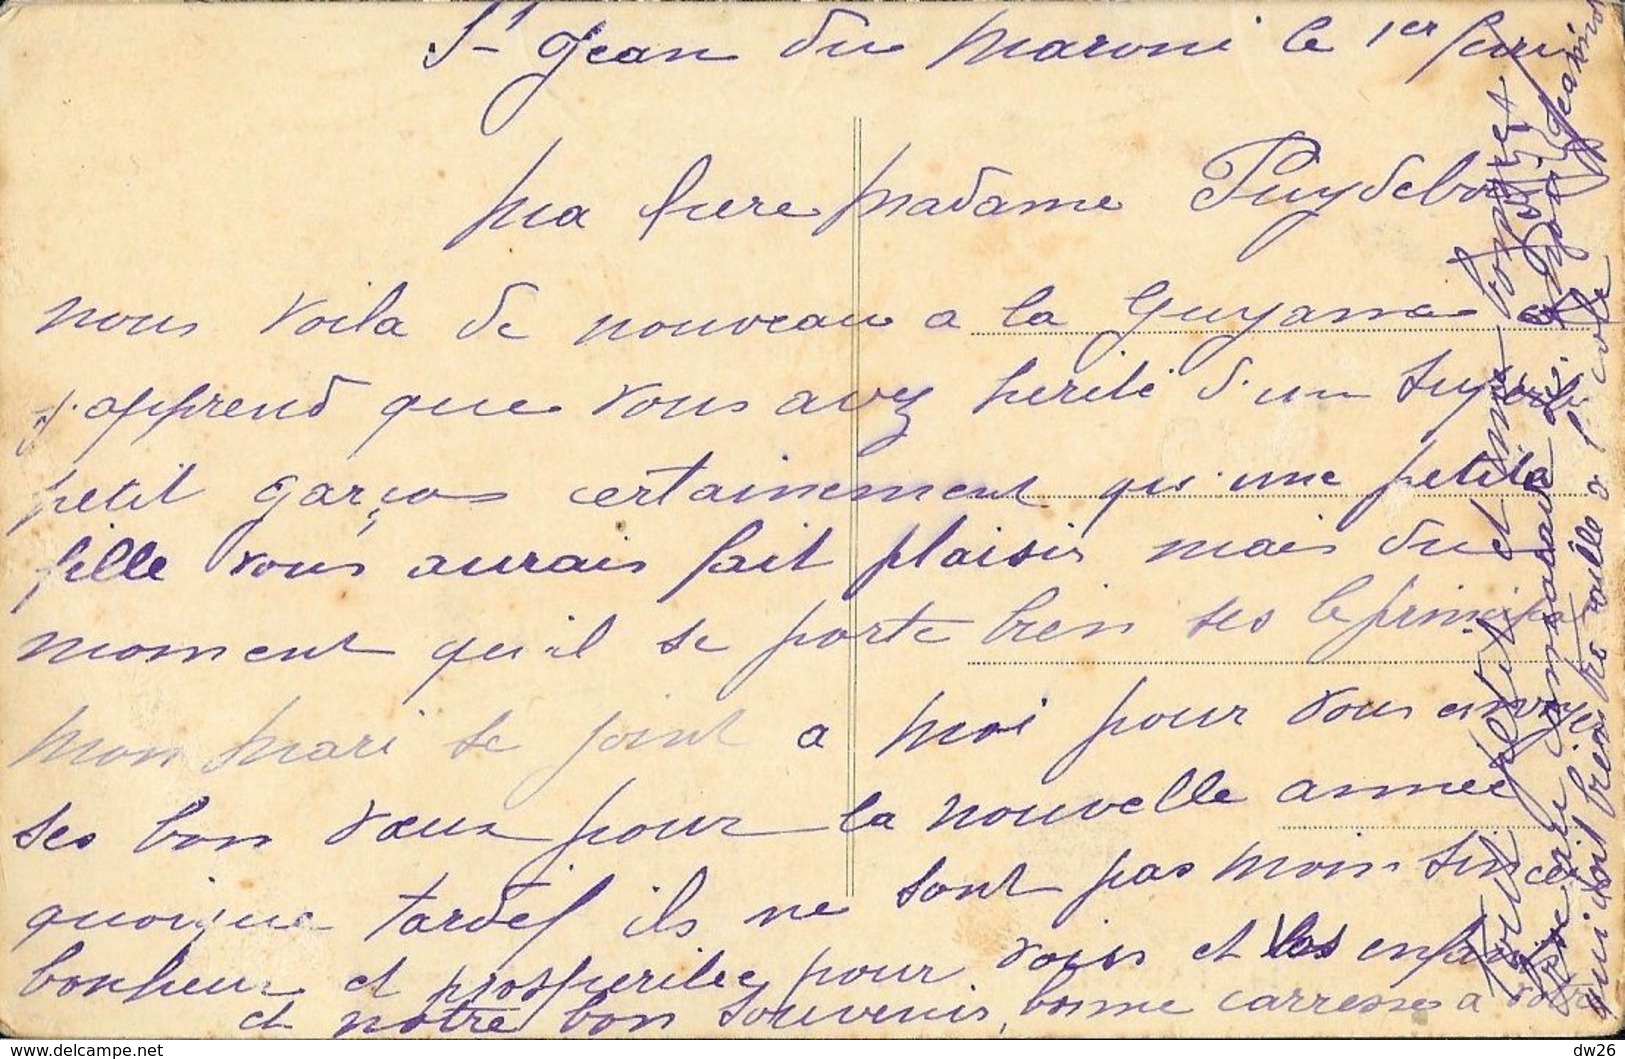 St Jean du Maroni le 1er
ma chere madame Puydebois
nous voila de nouveau a la Guyane et
j'apprend que vous avez herité d'un superbe
petit garçon certainement qu'une petite
fille vous aurais fait plaisir mais du
moment qu'il se porte bien ses le principal
mon mari se joint a moi pour vous envoyer
ses bon vœux pour la nouvelle année
quoique tardif ils ne sont pas moin sincere
bonheur et prosperitée pour vous et les enfants
et notre bon souvenir, bonne carresse a votre
tout petit et une bonne
qui doit bien travaille a l'ecole
dw26